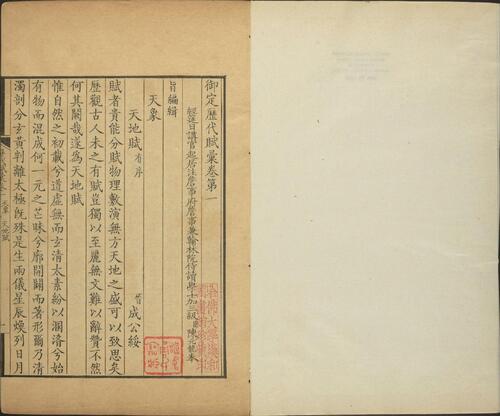 御定歷代賦彙卷第一
經筵日講官起居注詹事府詹事兼翰林院侍讀學士加三級臣陳元龍奉
旨編輯
天象
天地賦有序
晉成公綏
賦者貴能分賦物理敷演無方天地之盛可以致思矣
歷觀古人未之有賦豈獨以至麗無文難以辭贊不然
何其闕哉遂為天地賦
惟自然之初載兮道虛無而玄清太素紛以溷淆兮始
有物而混成何一元之芒昧兮廓開闢而著形爾乃清
濁剖分玄黃判離太極既殊是生兩儀星辰煥列日月